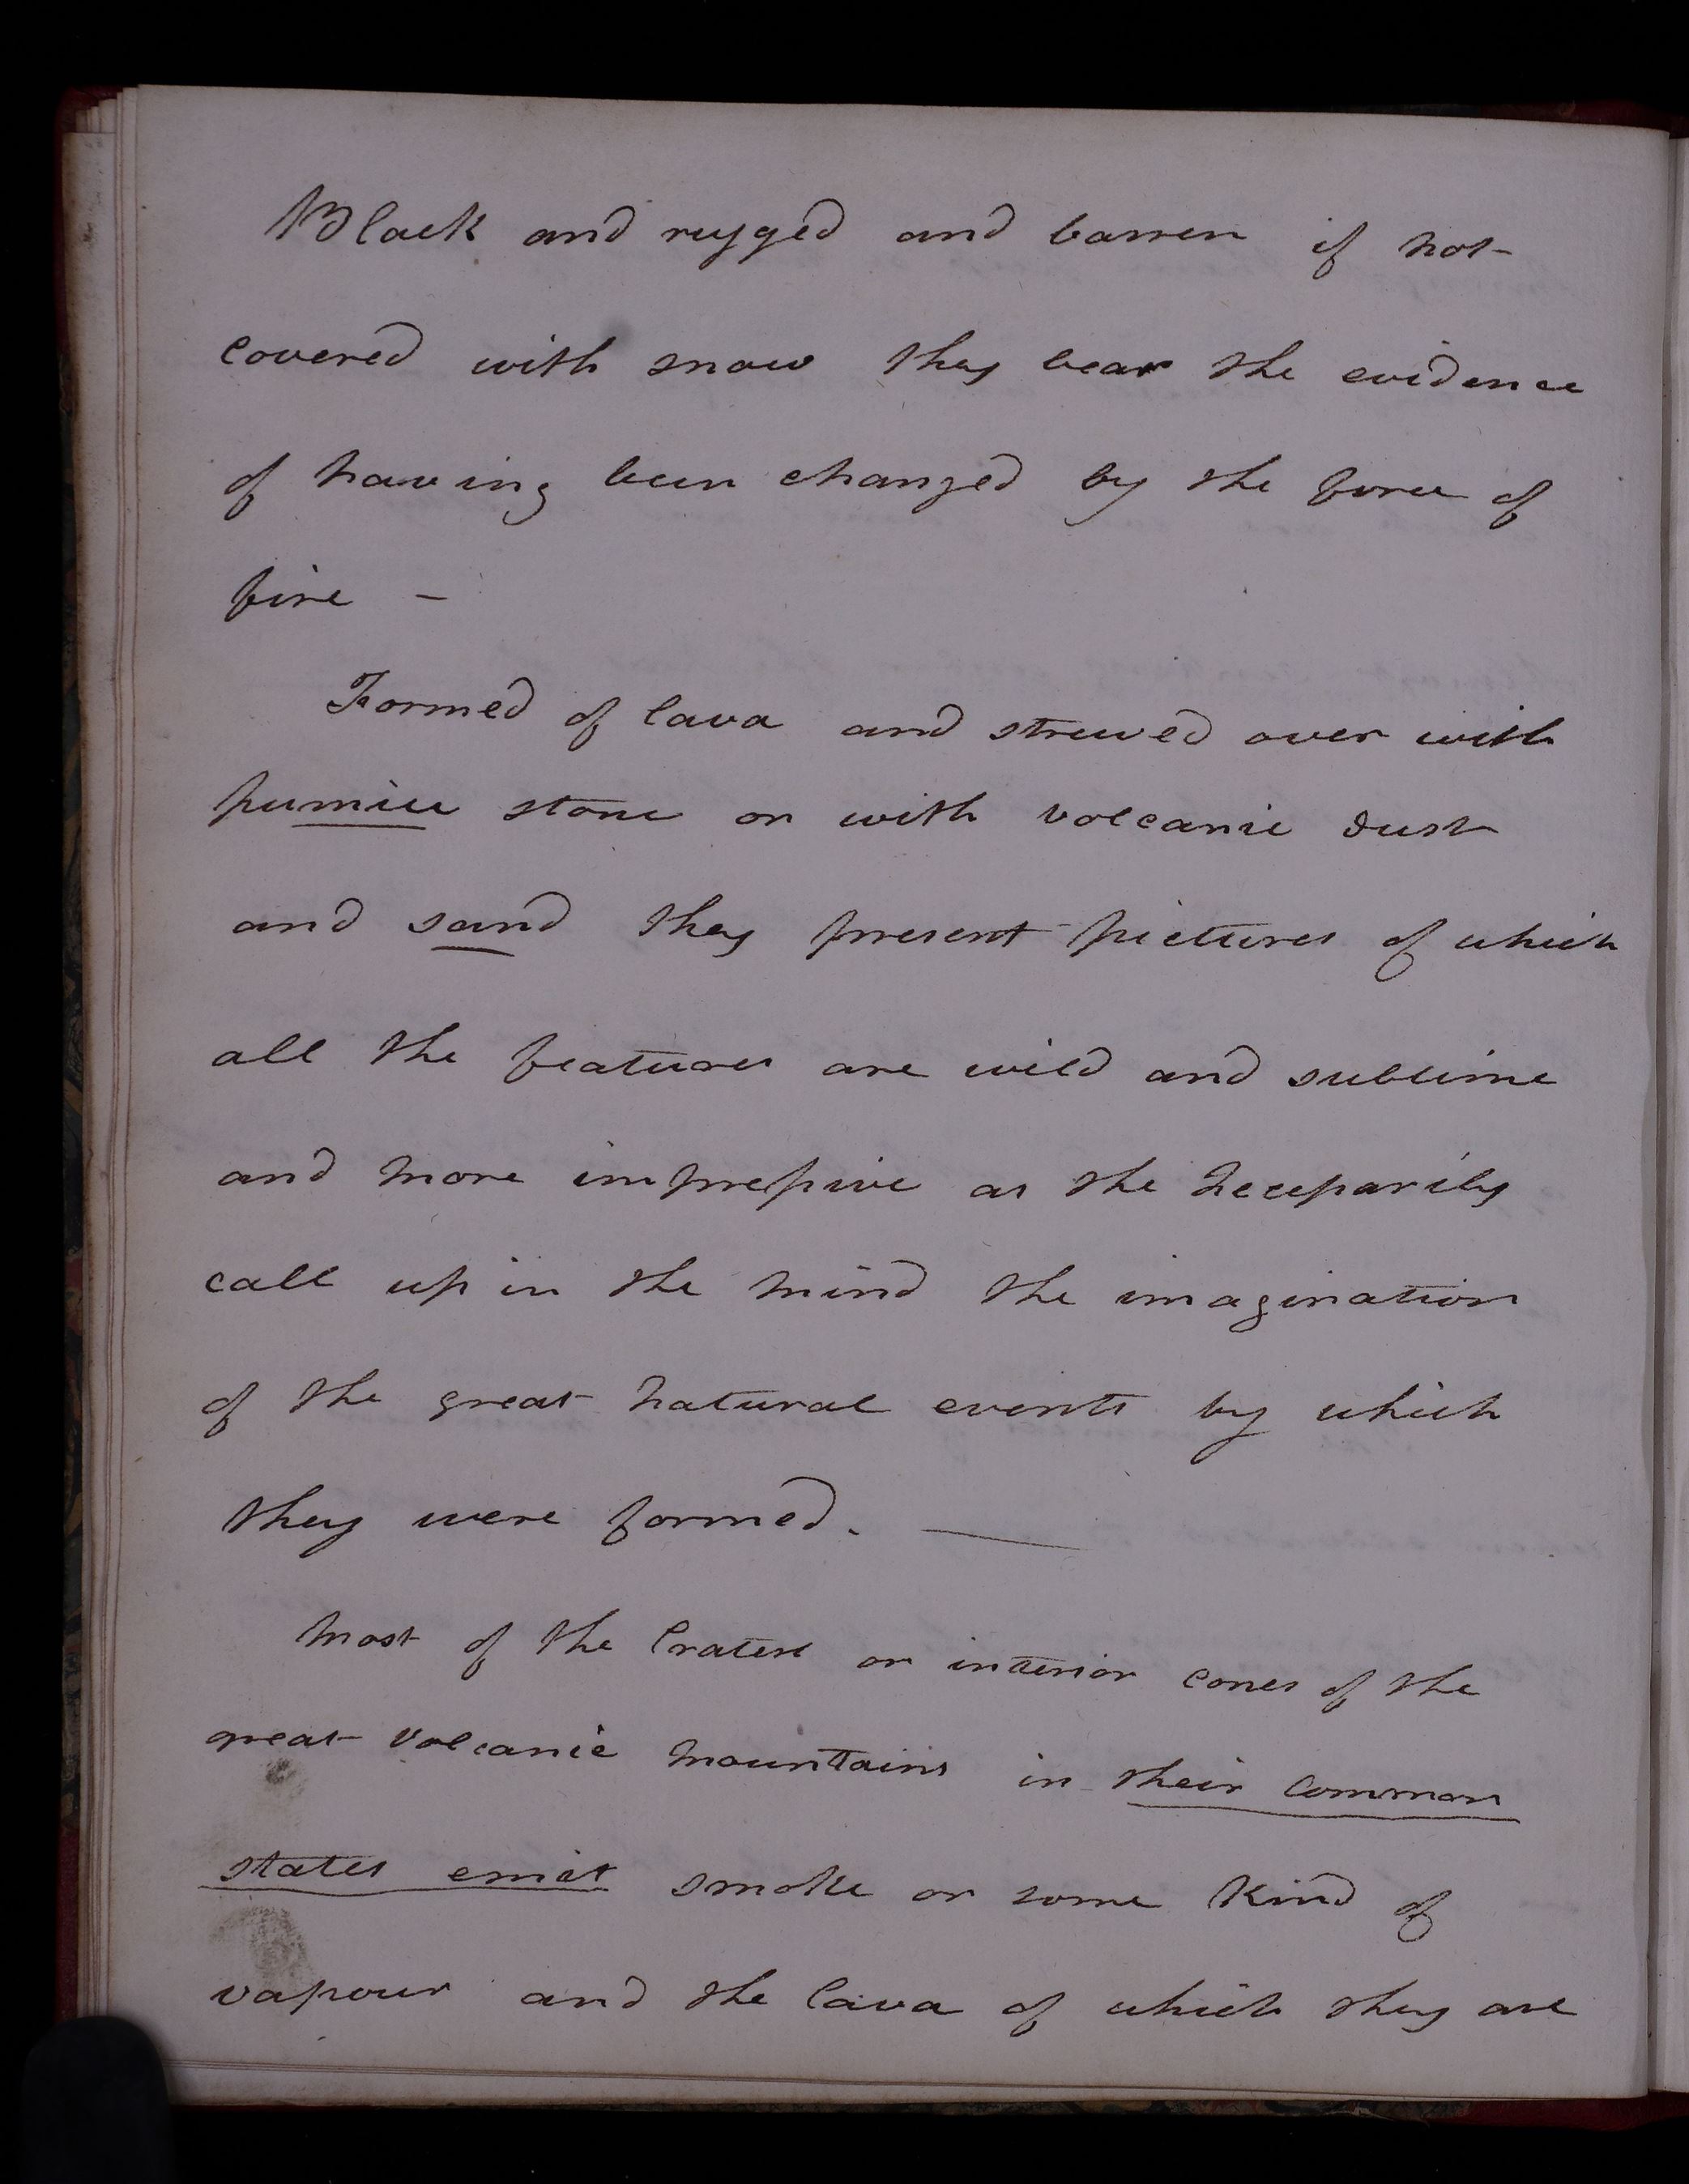 Black and rugged and barren if not
covered with snow they bear the evidence
of having been changed by the force of
fire –
Formed of lava and strewed over with
pumice stone or with volcanic dust
and sand they present pictures of which
all the features are wild and sublime
and more impressive as the necessarily
call up in the mind the imagination
of the great natural events by which
they were formed. —
Most of the Craters or interior cones of the
great Volcanic Mountains in their common
states emit smoke or some kind of
vapour and the lava of which they are